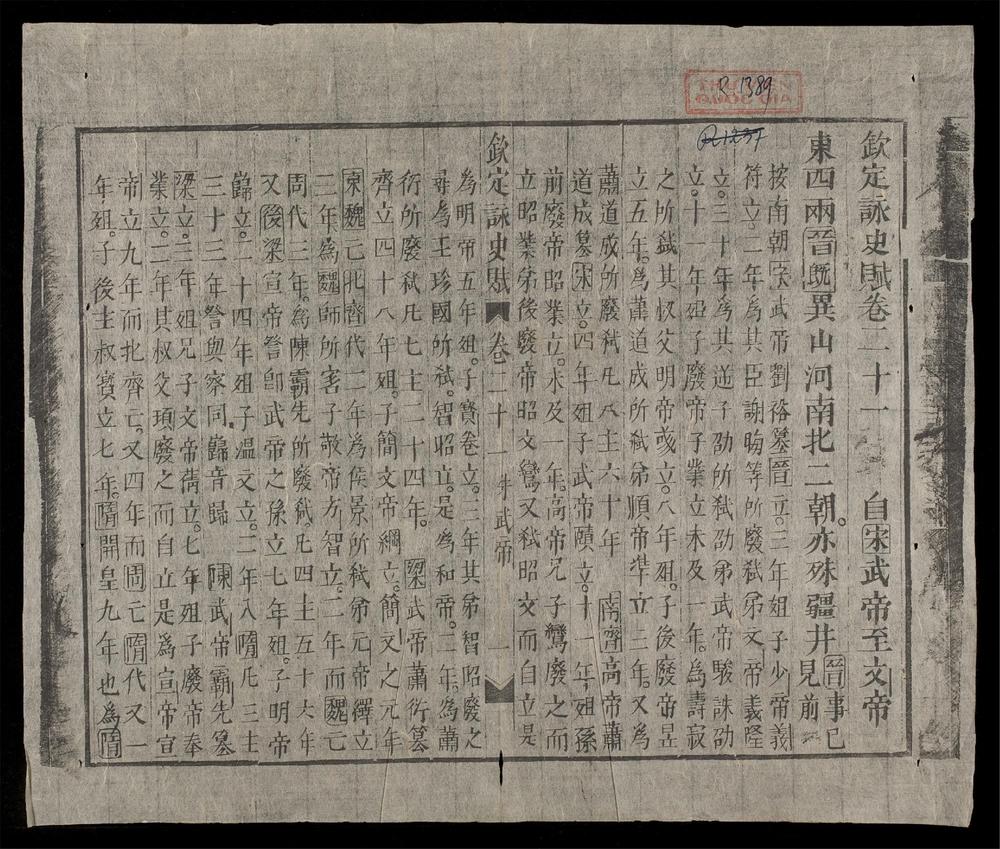 欽定詠史賦卷二十一 自宋武帝至文帝
東西兩晉既異山河南北二朝亦殊疆井 晉事已見前
按南朝宋武帝劉裕簒晉立三年殂子少帝義
符立二年為其臣謝晦等所廢弑弟文帝義隆
立三十年為其逆子劭所弑劭弟武帝駿誅劭
立十一年殂子廢帝子業立未及一年為壽寂
之所弑其叔父明帝彧立八年殂子後廢帝昱
立五年為蕭道成所弑弟順帝準立三年又為
蕭道成所廢弑凡八主六十年 南齊高帝蕭
道成簒宋立四年殂子武帝賾立十一年殂孫
前廢帝昭業立未及一年高帝兄子鸞廢之而
立昭業弟後廢帝昭文鸞又弑昭文而自立是
欽定詠史賦 卷二十一 宋武帝 一
為明帝五年殂子寶卷立三年其弟智昭廢之
尋為王珍國所弑智昭立是為和帝二年為蕭
衍所廢弑凡七主二十四年 梁武帝蕭衍簒
齊立四十八年殂子簡文帝綱立簡文之元年
東魏亡北齊代二年為侯景所弑弟元帝繹立
三年為魏師所害子敬帝方智立二年而魏亡
周代三年為陳霸先所廢弑凡四主五十六年
又後梁宣帝詧卽武帝之孫立七年殂子明帝
巋立二十四年殂子溫文立二年入隋凡三主
三十三年詧與察同巋音歸 陳武帝霸先簒
梁立三年殂兄子文帝蒨立七年殂子廢帝奉
業立二年其叔父頊廢之而自立是為宣帝宣
帝立九年而北齊亡又四年而周亡隋代又一
年殂子後主叔寶立七年隋開皇九年也為隋
THU VIEN
QUOC GIA
R 1389
R1237